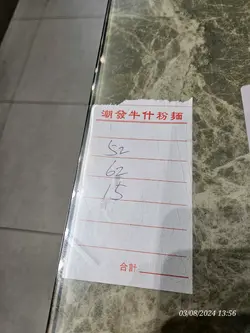 潮發牛什粉麵
52
62
15
合計
03/08/2024 13:56